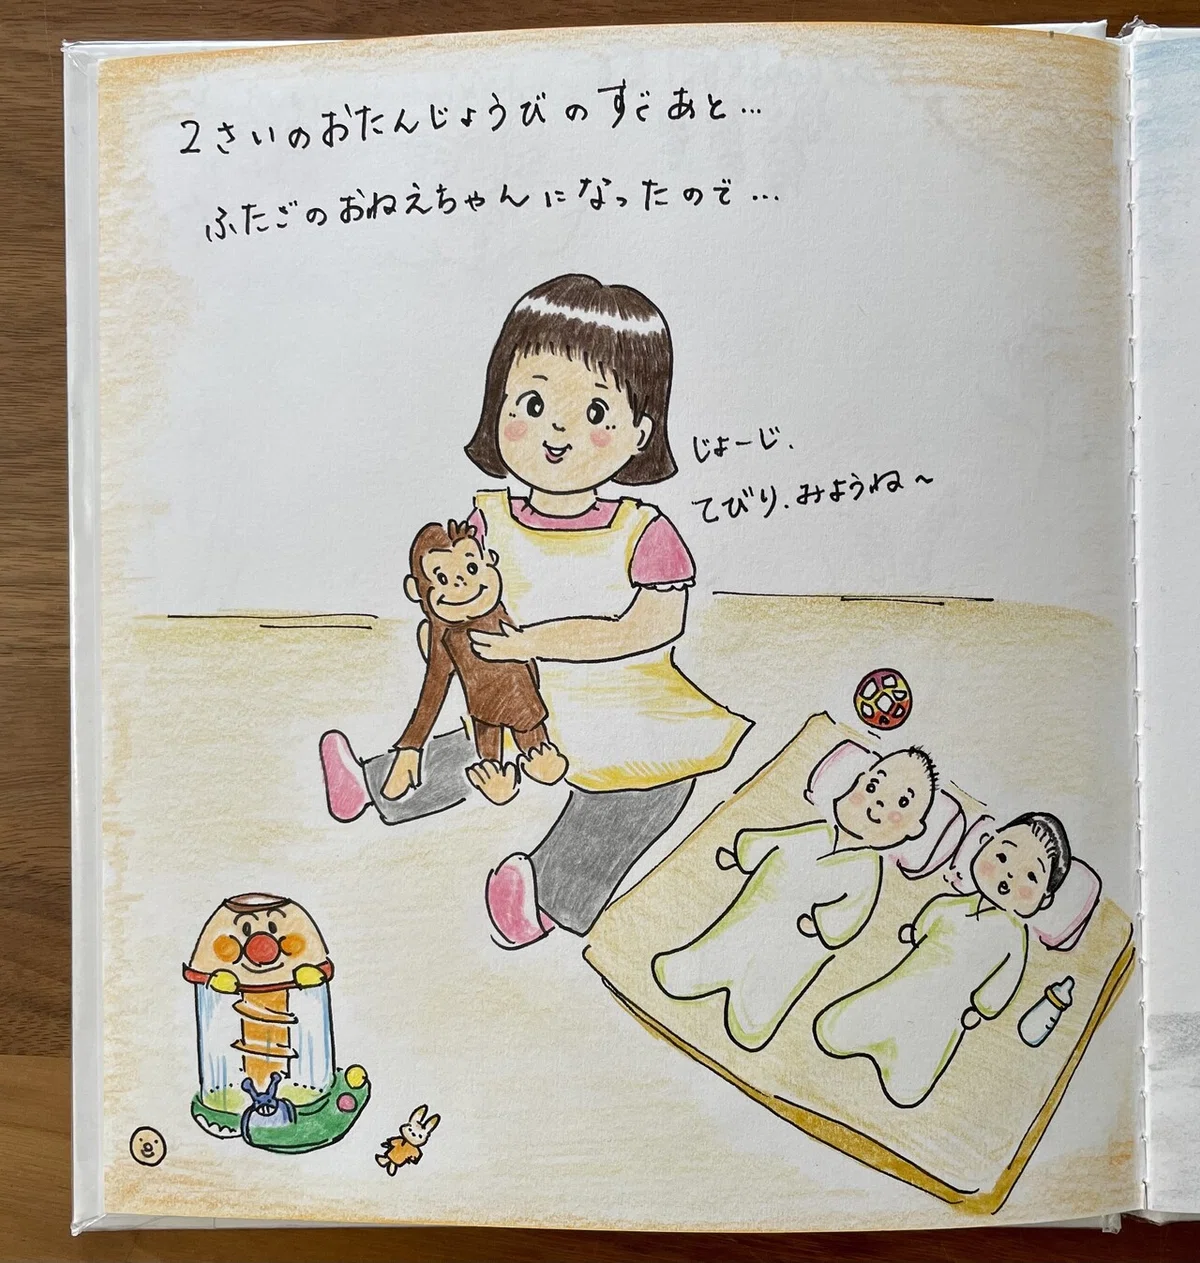 2さいのおたんじょうびのすぐあと...
ふたごのおねえちゃんになったので...
じょーじ、
てびり、みようね〜